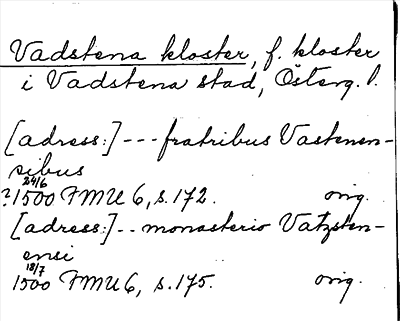 Vadstena kloster, f. kloster
i Vadstena stad, Österg. l.
[adress:] --- fratribus Vastenen-
sibus
24/6
? 1500 FMU 6, s. 172. orig.
[adress:] -- monasterio Vatzsten-
ensi
18/7
1500 FMU 6, s. 175. orig.